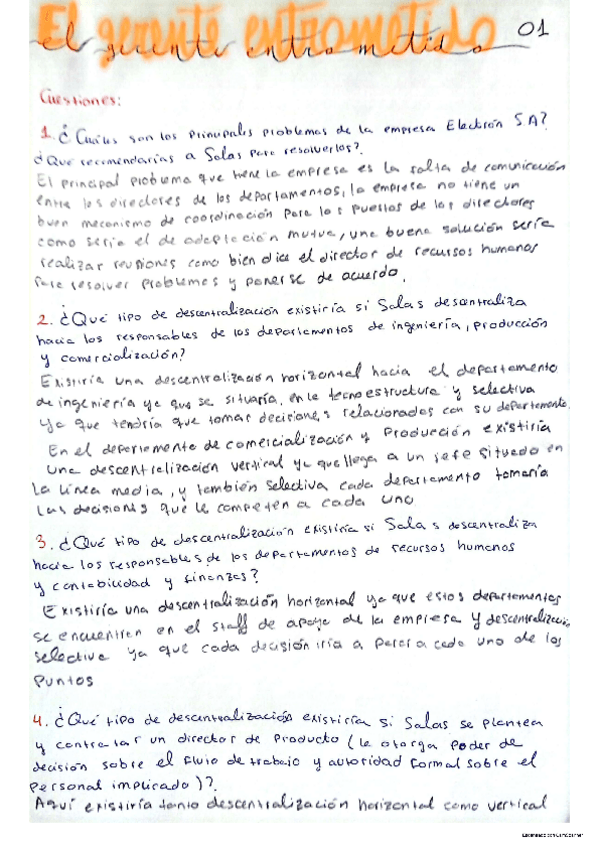 El gerente entrometido 01
Cuestiones:
1. ¿Cuáles son los principales problemas de la empresa Electrón S.A?
¿Que recomendarías a Salas para resolverlos?
El principal problema que tiene la empresa es la falta de comunicación
entre los directores de los departamentos, la empresa no tiene un
buen mecanismo de coordinación para los puestos de los directores
como sería el de adaptación mutua, una buena solución sería
realizar reuniones como bien dice el director de recursos humanos
para resolver problemas y ponerse de acuerdo.
2. ¿Qué tipo de descentralización existiría si Salas descentraliza
hacia los responsables de los departamentos de ingeniería, producción
y comercialización?
Existiría una descentralización horizontal hacia el departamento
de ingeniería ya que se situaría en la tecnoestructura y selectiva
ya que tendría que tomar decisiones relacionadas con su departamento
En el departamento de comercialización y Producción existiría
una descentralización vertical ya que llega a un jefe situado en
la línea media, y también selectiva cada departamento tomaría
las decisiones que le competen a cada uno
3. ¿Qué tipo de descentralización existiría si Salas descentraliza
hacia los responsables de los departamentos de recursos humanos
y contabilidad y finanzas?
Existiría una descentralización horizontal ya que estos departamentos
se encuentran en el staff de apoyo de la empresa y descentralización
selectiva ya que cada decisión iría a parar a cada uno de los
puntos
4. ¿Qué tipo de descentralización existiría si Salas se plantea
y contratar un director de producto (le otorga poder de
decisión sobre el fluio de trabajo y autoridad formal sobre el
personal implicado)?
Aquí existiría tanto descentralización horizontal como vertical